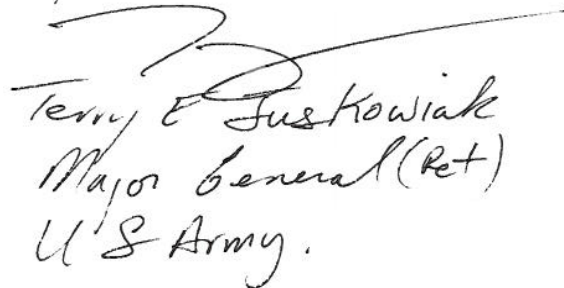 Terry E Juskowiak
Major General (Ret)
U S Army.